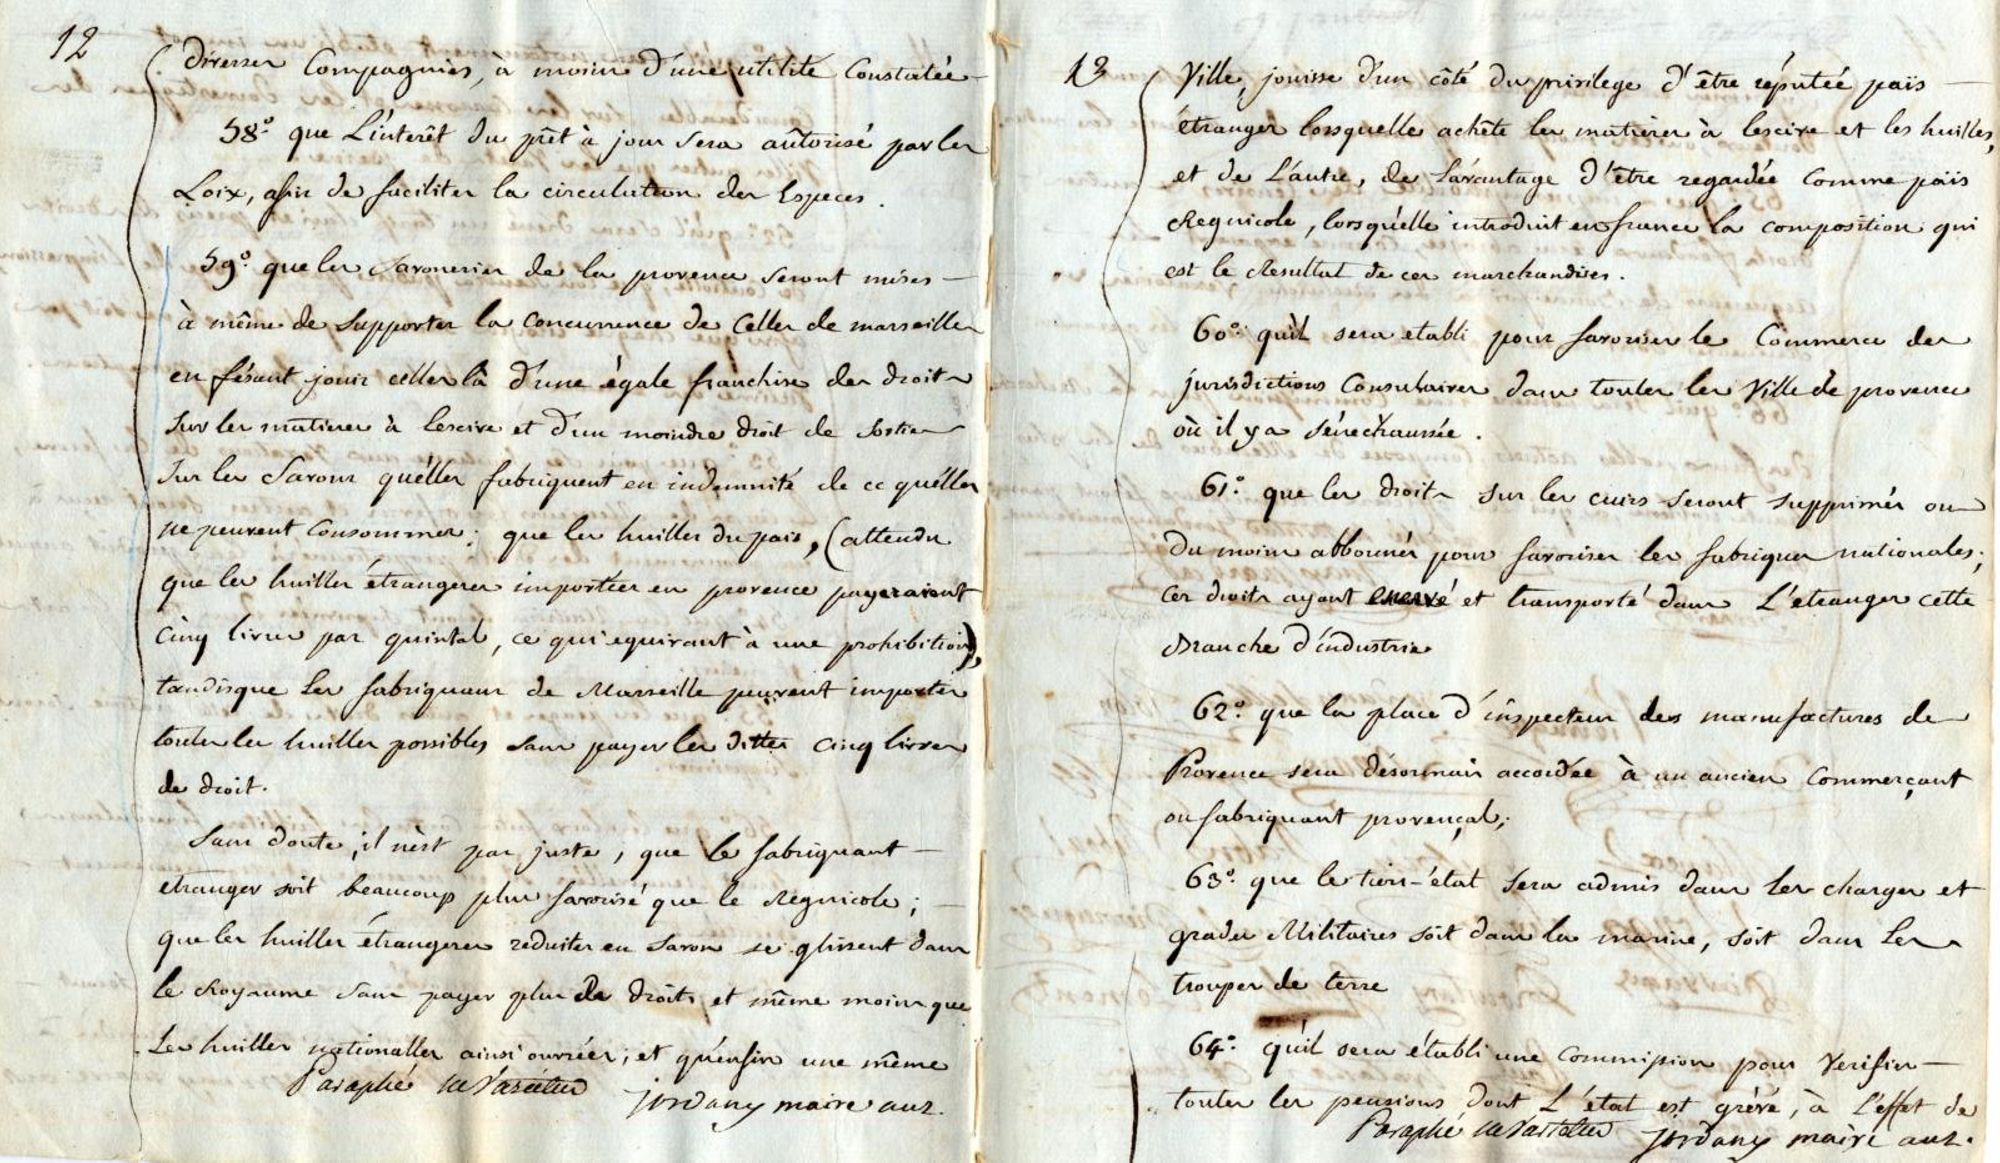 12
diverses Compagnies, à moins d'une utilité Constatée
58º. que L'interêt du prêt à jour sera aûtorisé par les
Loix, afin de faciliter la circulation des Especes.
59º. que les Savoneries de la provence seront mises
à même de Supporter la Concurrence de Celles de marseilles
en fésant jouir celles là d'une égale franchise des droits
sur les matieres à lescive et d'un moindre droit de sortie
Sur les Savons quélles fabriquent en indemnité de ce quélles
ne peuvent Consommer; que les huilles du païs, (attendu
que les huilles étrangeres importées en provence payeraient
Cinq livres par quintal, ce qui equivaut à une prohibition),
tandisque les fabriquans de Marseille peuvent importer
toutes les huilles possibles sans payer les dittes cinq livres
de droit.
Sans doute, il nèst pas juste, que le fabriquant
etranger soit beaucoup plus favorisé que le Regnicole;
que les huilles étrangeres reduites en Savon se glissent dans
le Royaume sans payer plus de droits et même moins que
les huilles nationalles ainsi ouvrées; et qu'enfin une même
Paraphé jordany maire aur.
13
Ville, jouisse d'un côté du privilege d'être réputée païs
étranger lorsquelle achête les matieres à lescive et les huilles,
et de L'autre, de L'avantage d'être regardée Comme païs
Regnicole, lorsquélle introduit en france la composition qui
est le Resultat de ces marchandises.
60º. qu'il sera etabli pour favoriser le Commerce des
jurisdictions Consulaires dans toutes les Ville de provence
où il y a Sénéchaussée.
61º. que les droits sur les cuirs seront supprimés ou
du moins abbonnés pour favoriser les fabriques nationales;
Ces droits ayant enervé et transporté dans L'etranger cette
Branche d'industrie
62º. que la place d'inspecteur des manufactures de
Provence sera désormais accordée à un ancien Commerçant
ou fabriquant provençal;
63º. que le tiers-état sera admis dans les charges et
grades Militaires soit dans la marine, soit dans les
troupes de terre
64º. qu'il sera établi une Commission pour Verifier
toutes les pensions dont L'état est grévé, à l'effet de
Paraphé jordany maire aur.